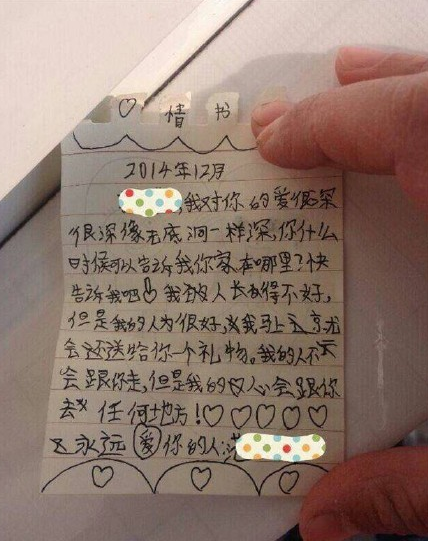 ♡ 情书
2014年12月
,我对你的爱很深
很深像无底洞一样深,你什么
时候可以告诉我你家在哪里?快
告诉我吧!我本人长得不好,
但是我的人为很好,
会还送给你一个礼物。我的人不
会跟你走,但是我的♡心会跟你
去 任何地方!♡♡♡♡♡
永远爱你的人:
♡ ♡ ♡